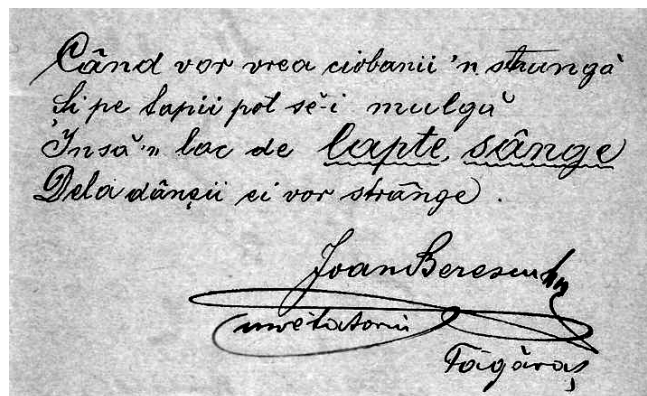 Când vor vrea ciobanii 'n strungă
Și pe țapii pot sĕ-i mulgă
Însă 'n loc de lapte, sânge
Dela dânșii ei vor strânge.
Ioan Berescu
învĕtatoriu
Făgăraș